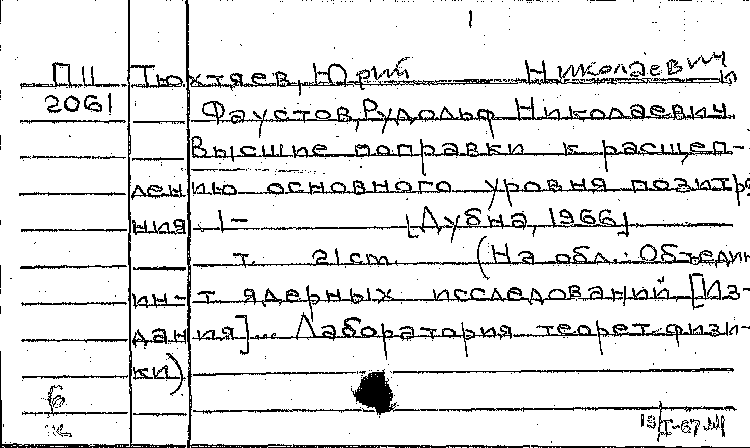 1
П11 Тюхтяев, Юрий Николаевич и
2061 Фаустов, Рудольф Николаевич.
Высшие поправки к расщеп-
лению основного уровня позитро
ния. 1- [Дубна, 1966]
т. 21 ст. (На обл.: Объедин.
ин-т ядерных исследований [Из-
дания]... Лаборатория теорет. физи-
ки)
б
ж
18/I-67